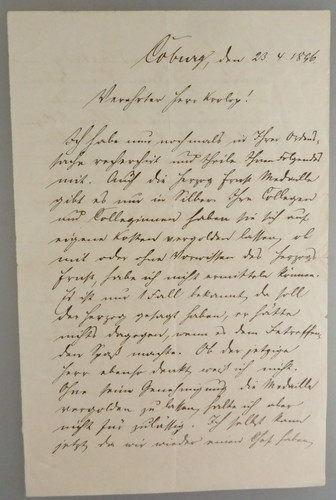 Coburg, den 23 4 1896
Verehrter Herr !
Ich habe nun nochmals in Ihrer Ordens-
sache recherchirt und theile Ihnen Folgendes
mit. Auch die Herzog Ernst Medaille
gibt es nur in Silber. Ihre Collegen
und Colleginnen haben sie sich auf
eigene Kosten vergolden lassen, ob
mit oder ohne Vorwissen des Herzogs
Ernst, habe ich nicht ermitteln können.
Es ist nur 1 Fall bekannt, da soll
der Herzog gesagt haben, er hätte
nichts dagegen, wenn es dem Betreffen-
den Spaß machte. Ob der jetzige
Herr ebenso denkt, weiß ich nicht.
Ohne seine Genehmigung die Medaille
vergolden zu lassen, halte ich aber
nicht für zulässig. Ich selbst kann
jetzt da wir wieder einen Chef haben,